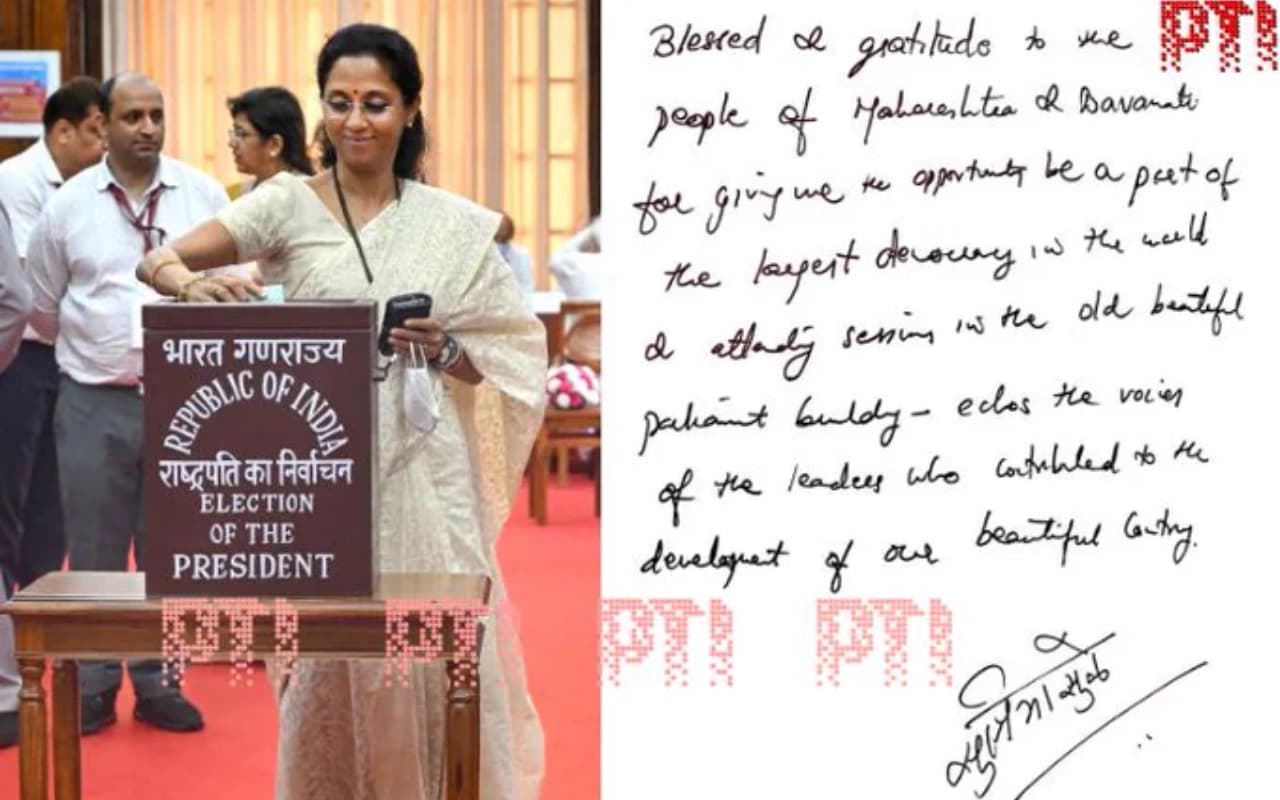 भारत गणराज्य
REPUBLIC OF INDIA
राष्ट्रपति का निर्वाचन
ELECTION
OF THE
PRESIDENT
Blessed & gratitude to the
people of Maharashtra & Baramati
for giving me the opportunity be a part of
the largest democracy in the world
& attending session in the old beautiful
parliament building - echos the voices
of the leaders who contributed to the
development of our beautiful Country.
PTI
PTI
PTI
PTI
PTI